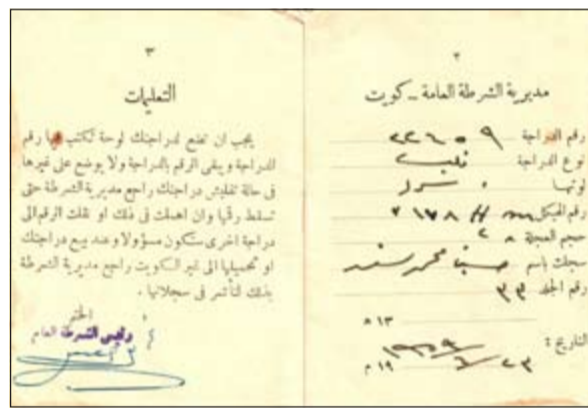 ٢
مديرية الشرطة العامة ــ كويت
رقم الدراجة ٢٢٤٥٩
نوع الدراجة
لونها
رقم الهيكل
حجم العجلة ٢٨
سجلت باسم محمد سند
رقم الجلد ٣٣
١٣ ﻫ
التاريخ : ٢٣/٦/١٩٥٩
١٩ م
٣
التعليمات
يجب ان تضع لدراجتك لوحة تكتب فيها رقم
الدراجة ويبقى الرقم بالدراجة ولا يوضع على غيرها
فى حالة تفليش دراجتك راجع مديرية الشرطة حتى
تسقط رقمها وان اهملت فى ذلك او نقلت الرقم الى
دراجة اخرى ستكون مسؤولا وعند بيع دراجتك
او تحميلها الى غير الكويت راجع مديرية الشرطة
بذلك لتأشر فى سجلاتها .
الختم
رئيس الشرطة العام